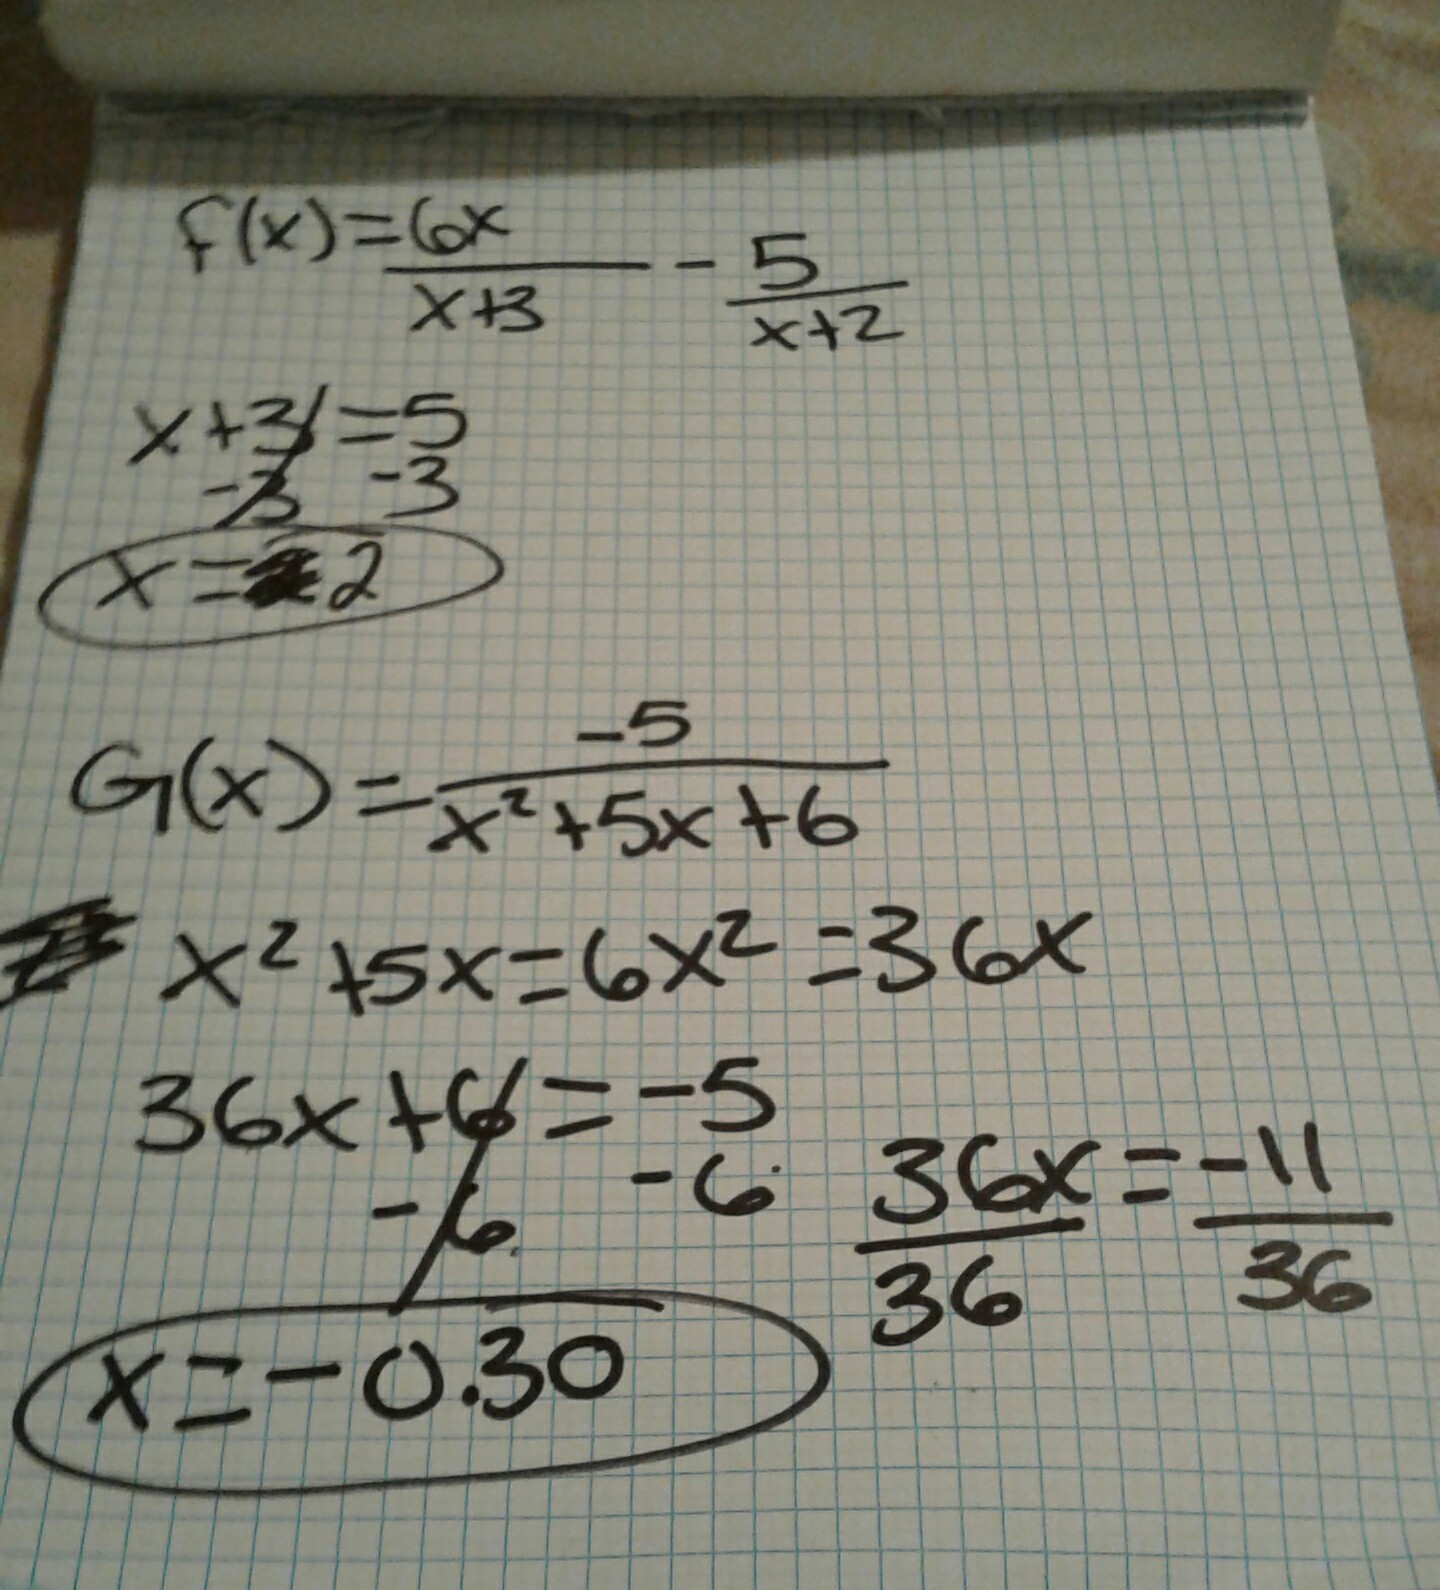 f(x)=6x/x+3 - 5/x+2
x+3=5
-3 -3
x=2
G(x)=-5/x²+5x+6
x²+5x=6x²=36x
36x+6=-5
-6 -6
36x/36=-11/36
x=-0.30